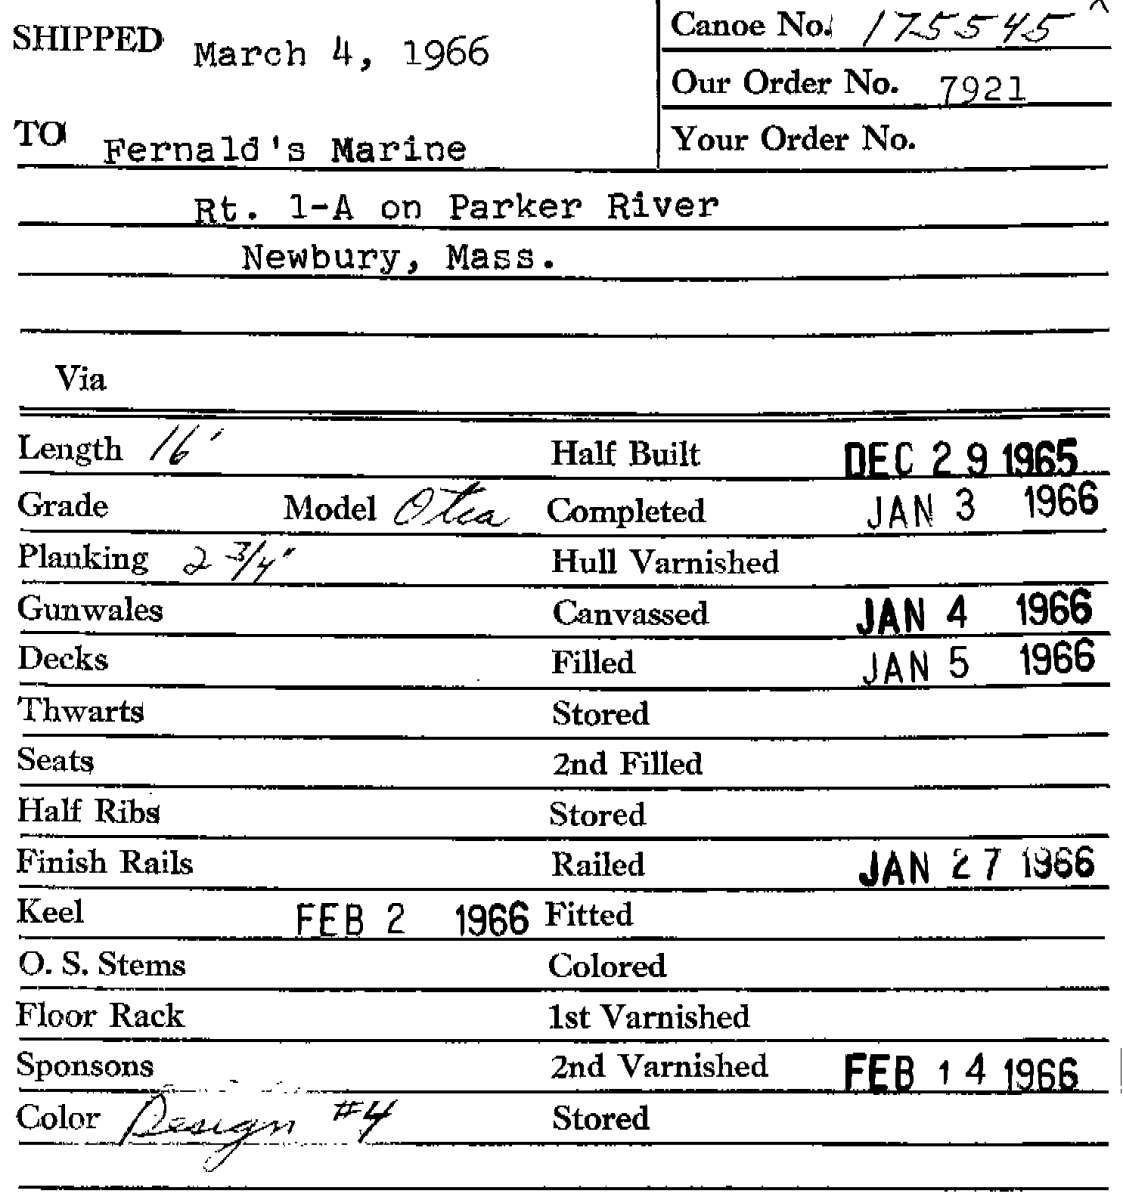 SHIPPED March 4, 1966
Canoe No. 175545
Our Order No. 7921
TO Fernald's Marine
Your Order No.
Rt. 1-A on Parker River
Newbury, Mass.
Via
Length 16' Half Built DEC 29 1965
Grade Model Otca Completed JAN 3 1966
Planking 2 3/4" Hull Varnished
Gunwales Canvassed JAN 4 1966
Decks Filled JAN 5 1966
Thwarts Stored
Seats 2nd Filled
Half Ribs Stored
Finish Rails Railed JAN 27 1966
Keel FEB 2 1966 Fitted
O. S. Stems Colored
Floor Rack 1st Varnished
Sponsons 2nd Varnished FEB 14 1966
Color Design #4 Stored